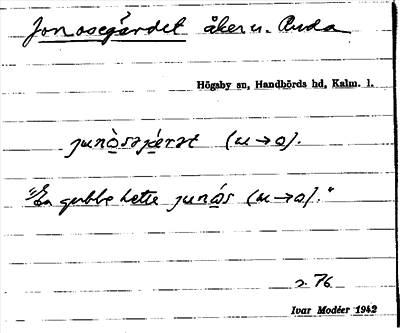 Jonosegärdet åker u. Ruda
Högsby sn, Handbörds hd, Kalm. l.
junòsəjæ̀rət (u→o).
"En gubbe hette junós (u→o)."
s. 76
Ivar Modéer 1942